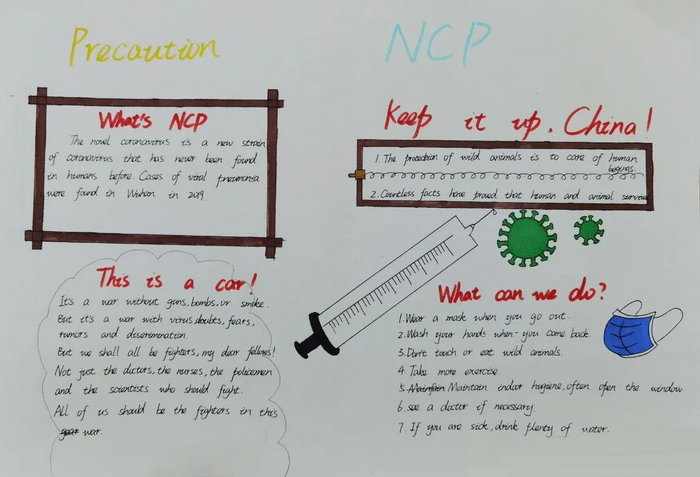 Precaution
NCP
What's NCP
The novel coronavirus is a new strain
of coronavirus that has never been found
in humans before. Cases of viral pneumonia
were found in Wuhan in 2019.
This is a car!
It's a war without guns, bombs, or smoke.
But it's a war with virus, doubts, fears,
rumors and discrimination.
But we shall all be fighters, my dear fellows!
Not just the doctors, the nurses, the policemen
and the scientists who should fight.
All of us should be the fighters in this
year war.
Keep it up, China!
1. The protection of wild animals is to care of human
beings
2. Countless facts have proved that human and animal survival
What can we do?
1. Wear a mask when you go out.
2. Wash your hands when you come back.
3. Don't touch or eat wild animals.
4 Take more exercise.
5. Maintain Maintain indoor hygiene, often open the window.
6. see a doctor if necessary.
7. If you are sick, drink plenty of water.